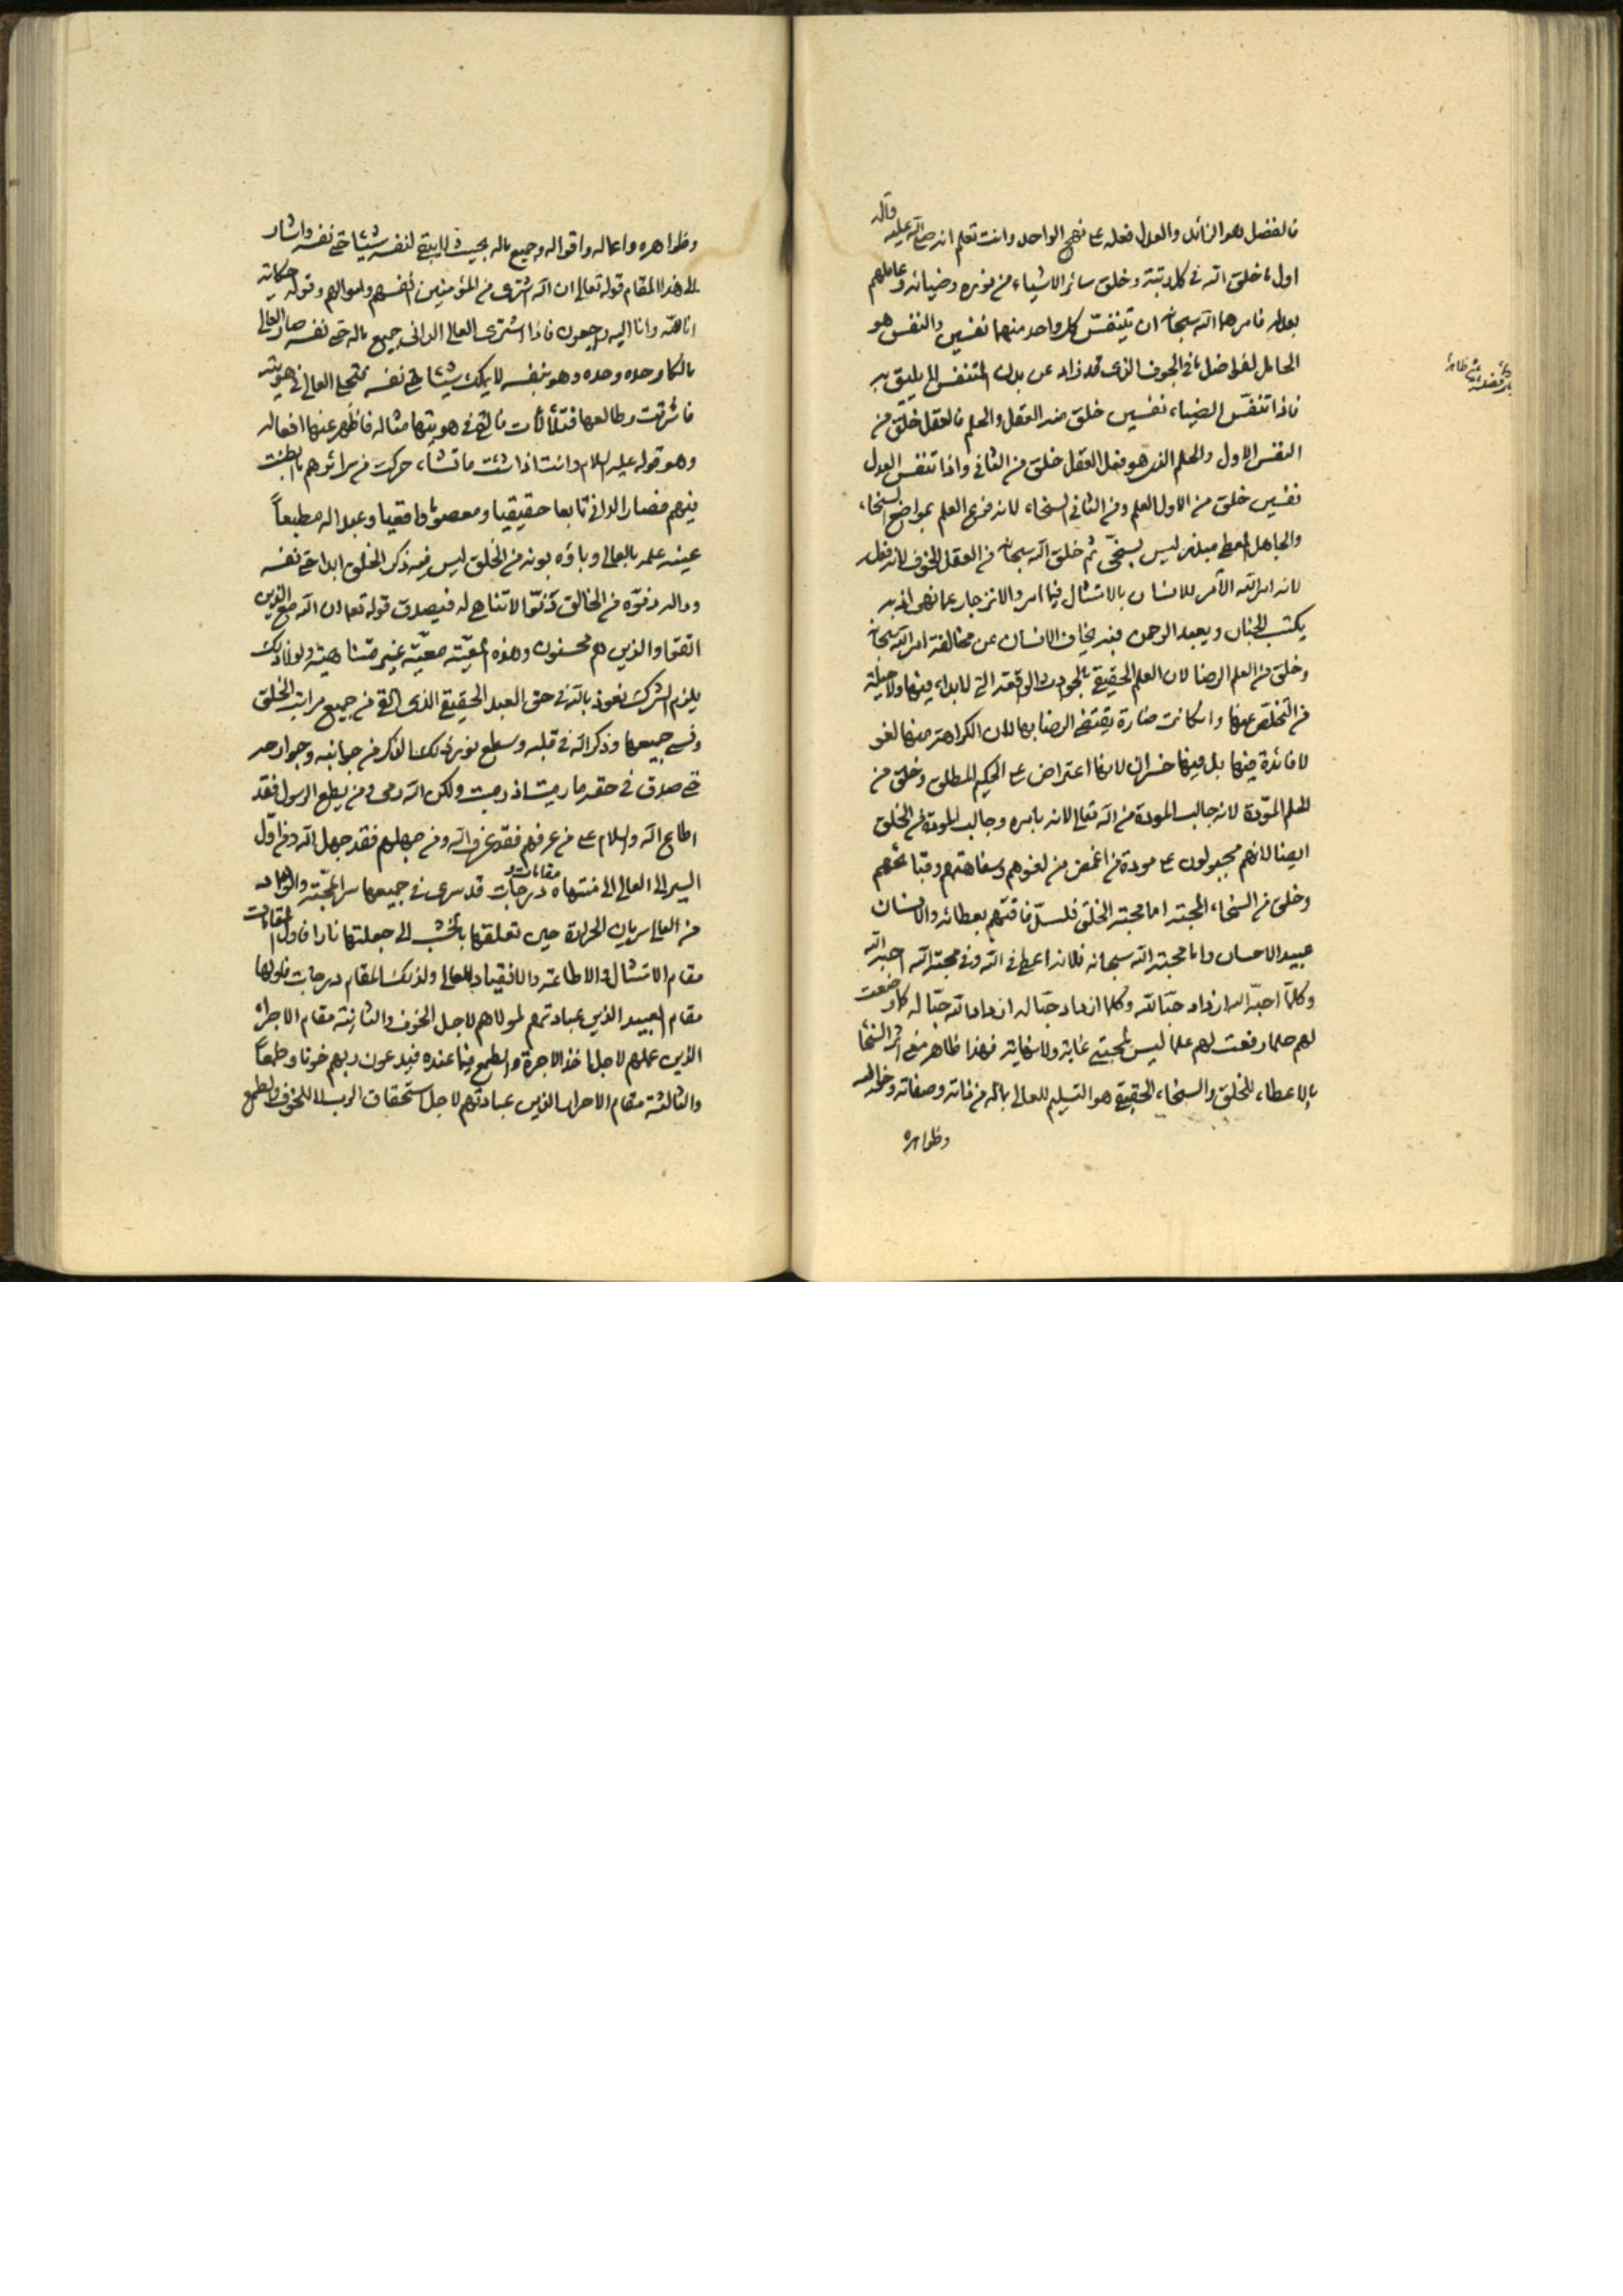 فالفضل هو الزائد والعدل فعله على نهج الواحد وانت تعلم انه صلى الله عليه وآله
اول ما خلق الله في كل رتبة وخلق سائر الاشياء من نوره وضيائه وعاملهم
بعدله فامرهما الله سبحانه ان يتنفس كل واحد منهما نفسين والنفس هو
الحامل لفواضل ما في الجوف الذي قد زاد عن بدن المتنفس الى ما يليق به
فاذا تنفس الضياء نفسين خلق منه العقل والحلم فالعقل خلق من
النفس الاول والحلم الذي هو فعل العقل خلق من الثاني واذا تنفس العدل
نفسين خلق من الاول العلم ومن الثاني السخاء لانه فرع العلم بمواضع السخاء
والجاهل المعطي مبذر ليس بسخي ثم خلق الله سبحانه من العقل الخوف لانه فعله
لانه امر الله الآمر للانسان بالامتثال فيما امر والانزجار عما نهى اذ به
يكتسب الجنان ويعبد الرحمن فبه يخاف الانسان عن مخالفة امر الله سبحانه
وخلق من العلم الرضا لان العلم الحقيقي بالحوادث الواقعة التي لا بداء فيها ولا حيلة
من التخلص عنها وان كانت ضارة يقتضي الرضا بها لان الكراهة منها لغو
لا فائدة فيها بل فيها خسران لانها اعتراض على الحكيم المطلق وخلق من
الحلم المودة لانه جالب المودة من الله تعالى لانه بامره وجالب المودة من الخلق
ايضا لانهم مجبولون على مودة من اغمض من لغوهم وسفاهتهم وقبائحهم
وخلق من السخاء المحبة اما محبة الخلق فلسد فاقتهم بعطائه والانسان
عبيد الاحسان واما محبة الله سبحانه فلانه اعطى في الله وفي محبة الله احبه الله
وكلما احبه الله ازداد حبا لله وكلما ازداد حبا له ازداد الله حبا له كلما وضعت
لهم حلما رفعت لهم علما ليس لمحبتي غاية ولا نهاية فهذا ظاهر معنى اثر السخاء
بالاعطاء للخلق والسخاء الحقيقي هو التسليم للعالي بماله من ذاته وصفاته وخيالاته
وظواهره
وظواهره واعماله واقواله وجميع ماله بحيث لا يبقى لنفسه شيئا حتى نفسه واشار
الى هذا المقام قوله تعالى ان الله اشترى من المؤمنين انفسهم واموالهم وقوله حكاية
انا لله وانا اليه راجعون فاذا اشترى العالي الداني جميع ماله حتى نفسه صار العالي
مالكا وحده وحده وهو بنفسه لا يملك شيئا حتى نفسه فتجلى العالي في هويته
فاشرقت وطالعها فتلألأت فالقى في هويتها مثاله فاظهر عنها افعاله
وهو قوله عليه السلام وانت اذا شئت ما تشاء حركت من سرائرهم ما ابطنت
فيهم فصار الداني تابعا حقيقيا ومعصوما واقعيا وعبدا له مطيعاً
عينه علمه بالعالي وباؤه بونه من الخلق ليس فيه ذكر الخلق ابدا حتى نفسه
وداله دنوه من الخالق دنوا لا تناهي له فيصدق قوله تعالى ان الله مع الذين
اتقوا والذين هم محسنون وهذه المعية معية غير متناهية ولولا ذلك
يلزم الشرك نعوذ بالله في حق العبد الحقيقي الذي اتقى من جميع مراتب الخلق
ونسي جميعها وذكر الله في قلبه وسطع نور ذلك الذكر من جوانبه وجوارحه
حتى صدق في حقه ما رميت اذ رميت ولكن الله رمى ومن يطع الرسول فقد
اطاع الله والسلام على من عرفهم فقد عرف الله ومن جهلهم فقد جهل الله ومن اول
السير الى العالي الى منتهاه مقامات ودرجات قد سرى في جميعها سر المحبة والوداد
من العالي سريان الحرارة حين تعلقها بالخشب الى جعلتها نارا فاول المقامات
مقام الامتثال والاطاعة والانقياد للعالي ولذلك المقام درجات فاولها
مقام العبيد الذين عبادتهم لمولاهم لاجل الخوف والثانية مقام الاجراء
الذين عملهم لاجل اخذ الاجرة والطمع فيما عنده فيدعون ربهم خوفا وطمعاً
والثالثة مقام الاحرار الذين عبادتهم لاجل استحقاق الرب لا للخوف والطمع